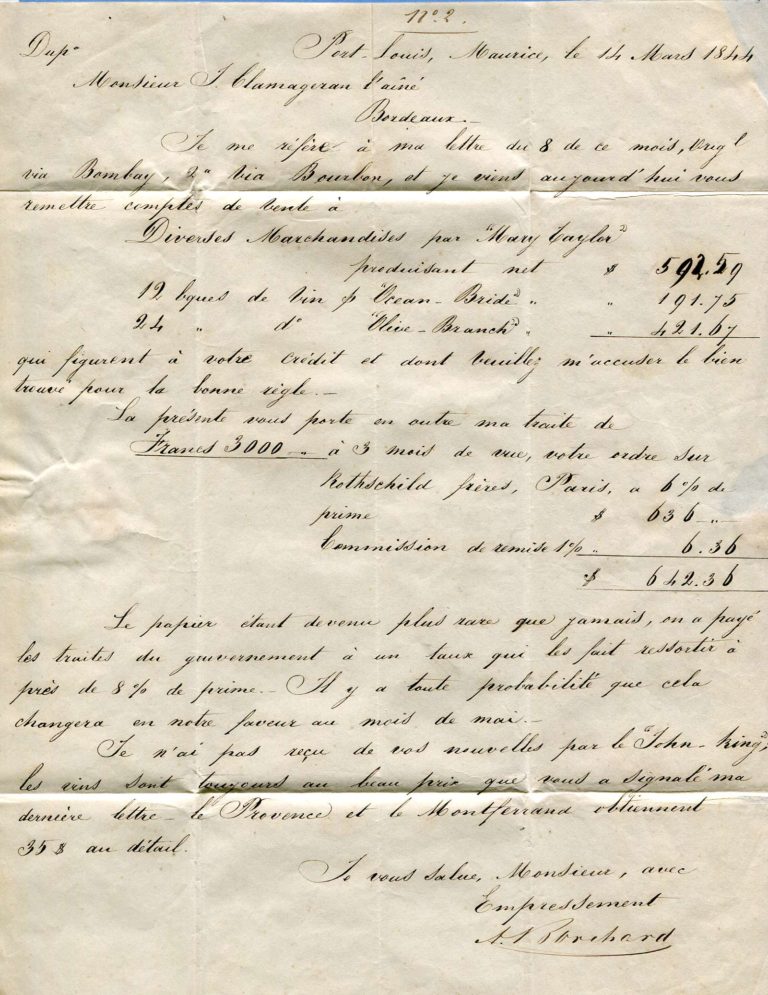 N.o 2.
Dup.o Port-Louis, Maurice, le 14 Mars 1844
Monsieur J. Clamageran l'aîné
Bordeaux.-
Je me réfère à ma lettre du 8 de ce mois, Orig.l
via Bombay, 2.a via Bourbon, et je viens aujourd'hui vous
remettre comptes de vente à
Diverses Marchandises par "Mary Taylor"
produisant net $ 592.59
12 bques de vin p "Ocean-Bride" " " 191.75
24 " d.o "Olive-Branch" " " 421.67
qui figurent à votre crédit et dont veuillez m'accuser le bien
trouvé pour la bonne règle.-
La présente vous porte en outre ma traite de
Francs 3000 -"- à 3 mois de vue, votre ordre sur
Rothschild frères, Paris, a 6% de
prime $ 636 -"-
Commission de remise 1% " 6.36
$ 642.36
Le papier étant devenu plus rare que jamais, on a payé
les traites du gouvernement à un taux qui les fait ressortir à
près de 8% de prime.- Il y a toute probabilité que cela
changera en notre faveur au mois de mai.-
Je n'ai pas reçu de vos nouvelles par le "John-King",
les vins sont toujours au beau prix que vous a signalé ma
dernière lettre - le Provence et le Montferrand obtiennent
35 $ au détail.
Je vous salue, Monsieur, avec
Empressement